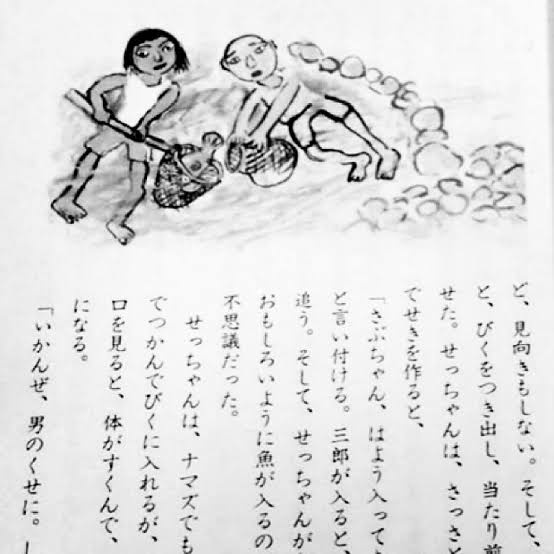 ど、見向きもしない。そして、
と、びくをつき出し、当たり前
せた。せっちゃんは、さっさ
でせきを作ると、
「さぶちゃん、はよう入って
と言い付ける。三郎が入ると、
追う。そして、せっちゃんが
おもしろいように魚が入るの
不思議だった。
せっちゃんは、ナマズでも
でつかんでびくに入れるが、
口を見ると、体がすくんで、
になる。
「いかんぜ、男のくせに。